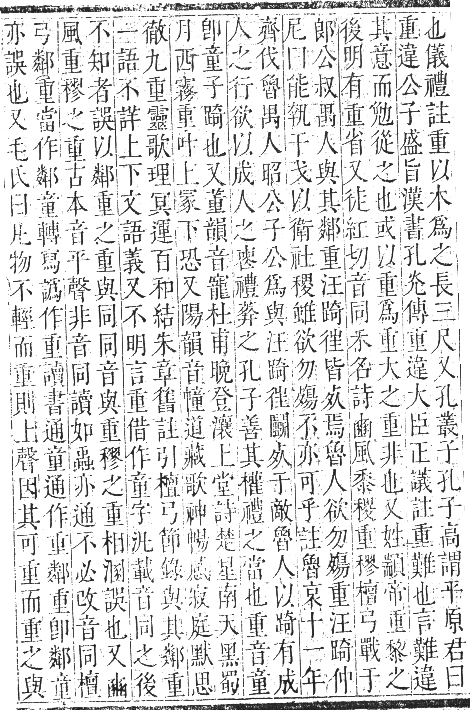 也儀禮註重以木爲之長三尺又孔叢子孔子高謂平原君曰
重違公子盛旨漢書孔光傳重違大臣正議註重難也言難違
其意而勉從之也或以重爲重大之重非也又姓顓帝重黎之
後明有重省又徒紅切音同禾名詩豳風黍稷重穋檀弓戰于
郎公叔禺人與其鄰重汪踦徃皆死焉魯人欲勿殤重汪踦仲
尼曰能執干戈以衛社稷雖欲勿殤不亦可乎註魯哀十一年
齊伐魯禺人昭公子公爲與汪踦徃鬭死于敵魯人以踦有成
人之行欲以成人之喪禮葬之孔子善其權禮之當也重音童
卽童子踦也又董韻音寵杜甫晚登瀼上堂詩楚星南天黑蜀
月西霧重叶上冢下恐又陽韻音幢道藏歌神暢感寂庭默思
徹九重靈歌理冥運百和結朱章舊註引檀弓節錄與其鄰重
一語不詳上下文語義又不明言重借作童字汎載音同之後
不知者誤以鄰重之重與同同音與重穋之重相溷誤也又豳
風重穋之重古本音平聲非音同讀如蟲亦通不必改音同檀
弓鄰重當作鄰童轉寫譌作重讀書通童通作重鄰重卽鄰童
亦誤也又毛氏曰凡物不輕而重則上聲因其可重而重之與